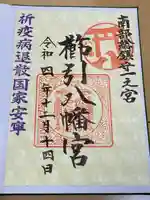 南部総鎮守一之宮
櫛引八幡宮
令和四年十二月十四日
祈疫病退散国家安寧